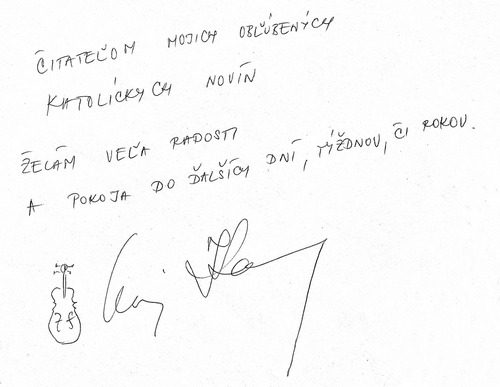 ČITATEĽOM MOJICH OBĽÚBENÝCH
KATOLÍCKYCH NOVÍN
ŽELÁM VEĽA RADOSTI
A POKOJA DO ĎALŠÍCH DNÍ, TÝŽDNOV, ČI ROKOV.